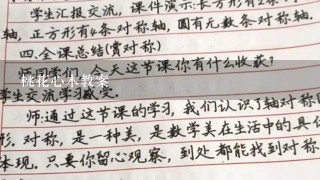 学生汇报交流，课件演示:长方形有2条
轴，正方形有4条对称轴，圆有无数条对称轴.
四.全课总结(赏对称)
师:同学们，今天这节课你有什么收获?
桃花心木教案
学生交流学习感受.
师:通过这节课的学习，我们认识了轴对称图
形.对称，是一种美，是数学美在生活中的具体
体现.只要你留心观察，到处都能找到对称